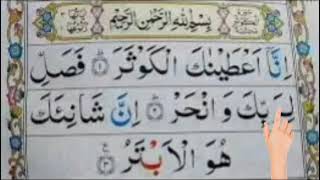 بِسْمِ اللهِ الرَّحْمٰنِ الرَّحِيْمِ
اِنَّاۤ اَعْطَيْنٰكَ الْكَوْثَرَ ۝١ فَصَلِّ
لِرَبِّكَ وَ انْحَرْ ۝٢ اِنَّ شَانِئَكَ
هُوَ الْاَبْتَرُ ۝٣